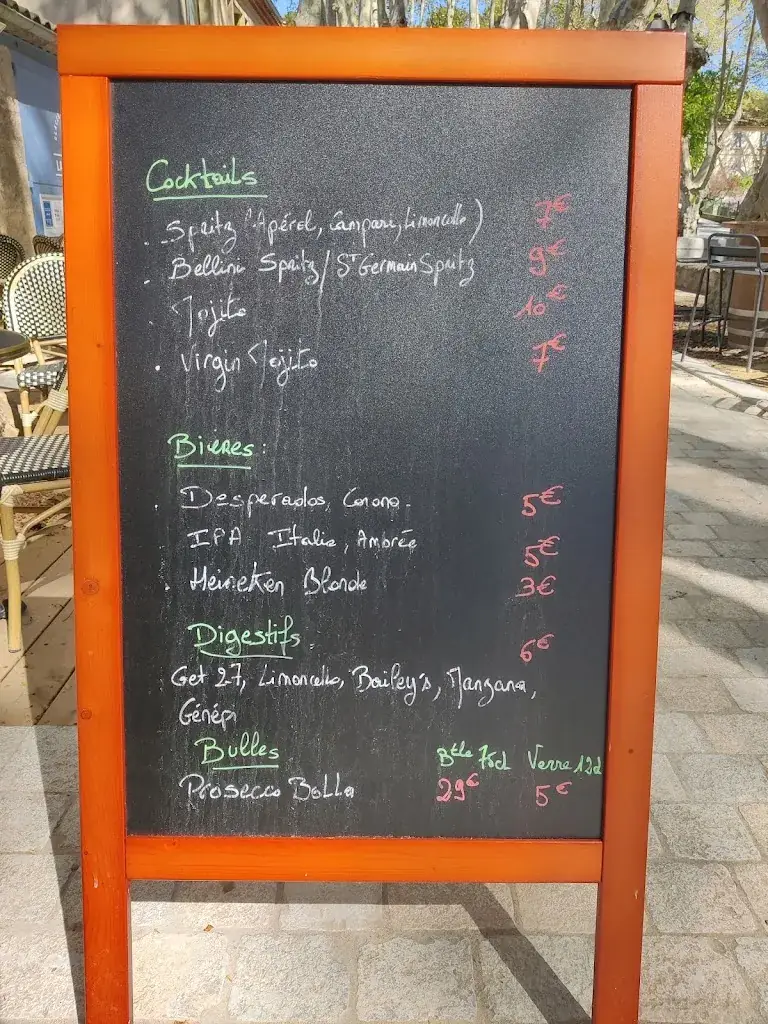 Cocktails
. Spritz (Apérol, Campari, Limoncello) 7€
. Bellini Spritz / St Germain Spritz 9€
. Mojito 10€
. Virgin Mojito 7€
Bières :
. Desperados, Corona. 5€
IPA Italie, Ambrée 5€
. Heineken Blonde 3€
Digestifs. 6€
Get 27, Limoncello, Bailey's, Manzana,
Génépi
Bulles Btle 75cl Verre 12cl
Prosecco Bolla 29€ 5€